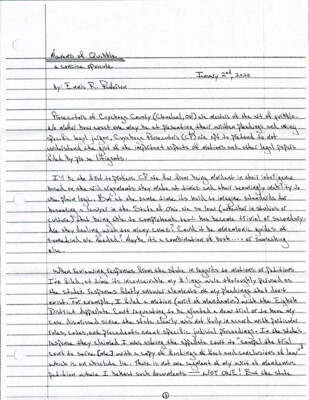 Masters of Quibble
a concise opuscule
January 2nd, 2020
by: Ennis R.
Prosecutors of Cuyahoga County (Cleveland, OH) are masters of the art of quibble.
No matter how exact one may be at presenting their written pleadings and using
specific legal jargon, Cuyahoga Prosecutors (CP) are apt to pretend to not
understand the gist of the important aspects of motions and other legal papers
filed by pro se litigants.
I'll be the first to profess CP are far from being in their intelligence
based on the arguments they make at times and their seemingly inability to
use plain logic. But at the same time its hard to imagine standards for
becoming a lawyer in the State of Ohio are so low (whether in studies or
culture) that being able to comprehend text has become trivial or secondary.
Are they dealing with too many cases? Could it be
needed? Maybe its a combination of both.... or something
else..
When reviewing responses from the State in regards to motions or petitions
I've filed, at times its inconceivable my filings were thoroughly perused as
the State's responses flatly answer elements of my pleadings that don't
exist. For example, I filed a motion (writ of mandamus) with the Eighth
District Appellate Court requesting to be granted a new trial or to have my
case dismissed since the State clearly was not fully in accord with particular
rules, codes and precedents amid specific judicial proceedings. In the State's
response they claimed I was asking the appellate court to "compel the trial
court to serve [me] with a copy of findings of fact and conclusions of law"
which is an absolute lie. There is not one segment of my writ of mandamus
petition where I asked such documents — NOT ONE! But the State
1